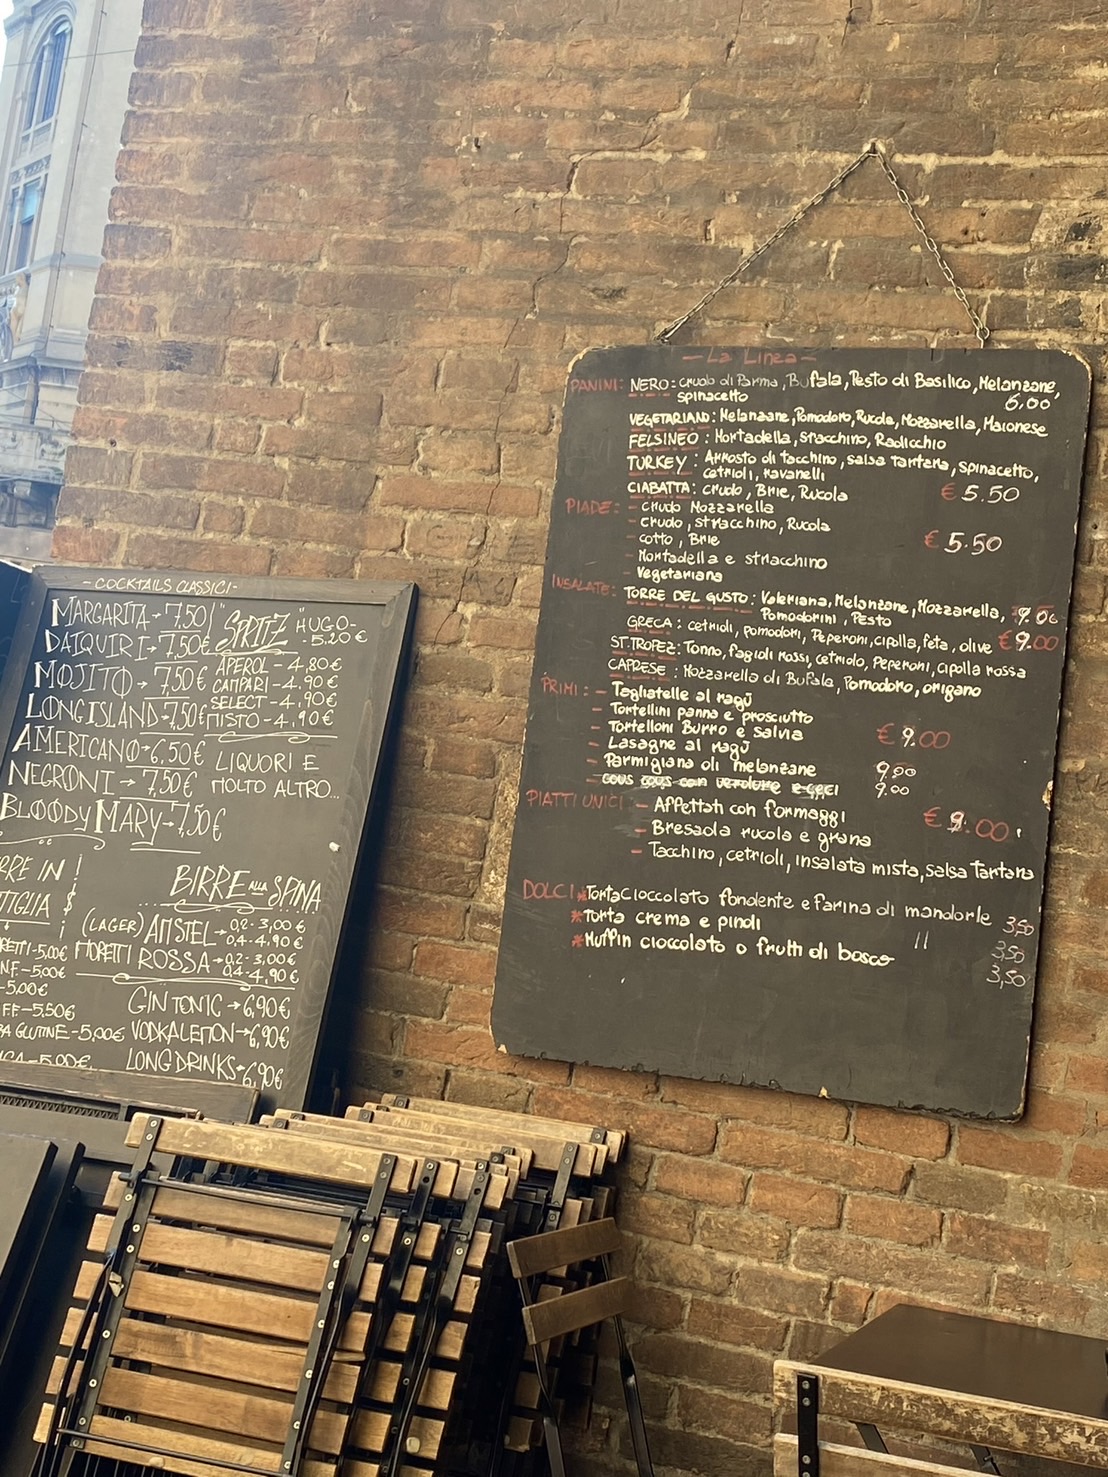 - COCKTAILS CLASSICI -
MARGARITA → 7,50
DAIQUIRI → 7,50€
MOJITO → 7,50€
LONG ISLAND → 7,50€
AMERICANO → 6,50€
NEGRONI → 7,50€
BLOODY MARY → 7,50€
SPRITZ HUGO -
- 5.20€
APEROL - 4,80€
CAMPARI - 4,90€
SELECT - 4,90€
MISTO - 4,90€
LIQUORI E
MOLTO ALTRO...
BIRRE ALLA SPINA
(LAGER) AMSTEL → 0,2 - 3,00€
0,4 - 4,90€
MORETTI ROSSA → 0,2 - 3,00€
0,4 - 4,90€
GIN TONIC → 6,90€
VODKA LEMON → 6,90€
LONG DRINKS → 6,90€
RRE IN
TIGLIA
RETTI - 5,00€
NF. - 5,00€
- 5,00€
FF - 5,50€
ZA GLUTINE - 5,00€
- 5,00€
- La Linea -
PANINI: NERO: crudo di Parma, Bufala, Pesto di Basilico, Melanzane,
spinacetto 6,00
VEGETARIANO: Melanzane, Pomodoro, Rucola, Mozzarella, Maionese
FELSINEO: Mortadella, stracchino, Radicchio
TURKEY: Arrosto di tacchino, salsa tartara, spinacetto,
cetrioli, ravanelli
CIABATTA: crudo, Brie, Rucola € 5.50
PIADE: - crudo Mozzarella
- crudo, stracchino, Rucola
- cotto, Brie € 5.50
- Mortadella e stracchino
- Vegetariana
INSALATE: TORRE DEL GUSTO: Valeriana, Melanzane, Mozzarella, 9.00
Pomodorini, Pesto
GRECA: cetrioli, pomodori, Peperoni, cipolla, feta, olive € 9.00
ST. TROPEZ: Tonno, fagioli rossi, cetriolo, Peperoni, cipolla rossa
CAPRESE: Mozzarella di Bufala, Pomodoro, origano
PRIMI: - Tagliatelle al ragù
- Tortellini panna e prosciutto
- Tortelloni Burro e salvia € 9.00
- Lasagne al ragù
- Parmigiana di melanzane 9,00
- cous cous con verdure e ceci 9.00
PIATTI UNICI: - Affettati con formaggi € 9.00
- Bresaola rucola e grana
- Tacchino, cetrioli, insalata mista, salsa tartara
DOLCI * Torta cioccolato fondente e farina di mandorle 3,50
* Torta crema e pinoli " 3,50
* Muffin cioccolato o frutti di bosco 3,50